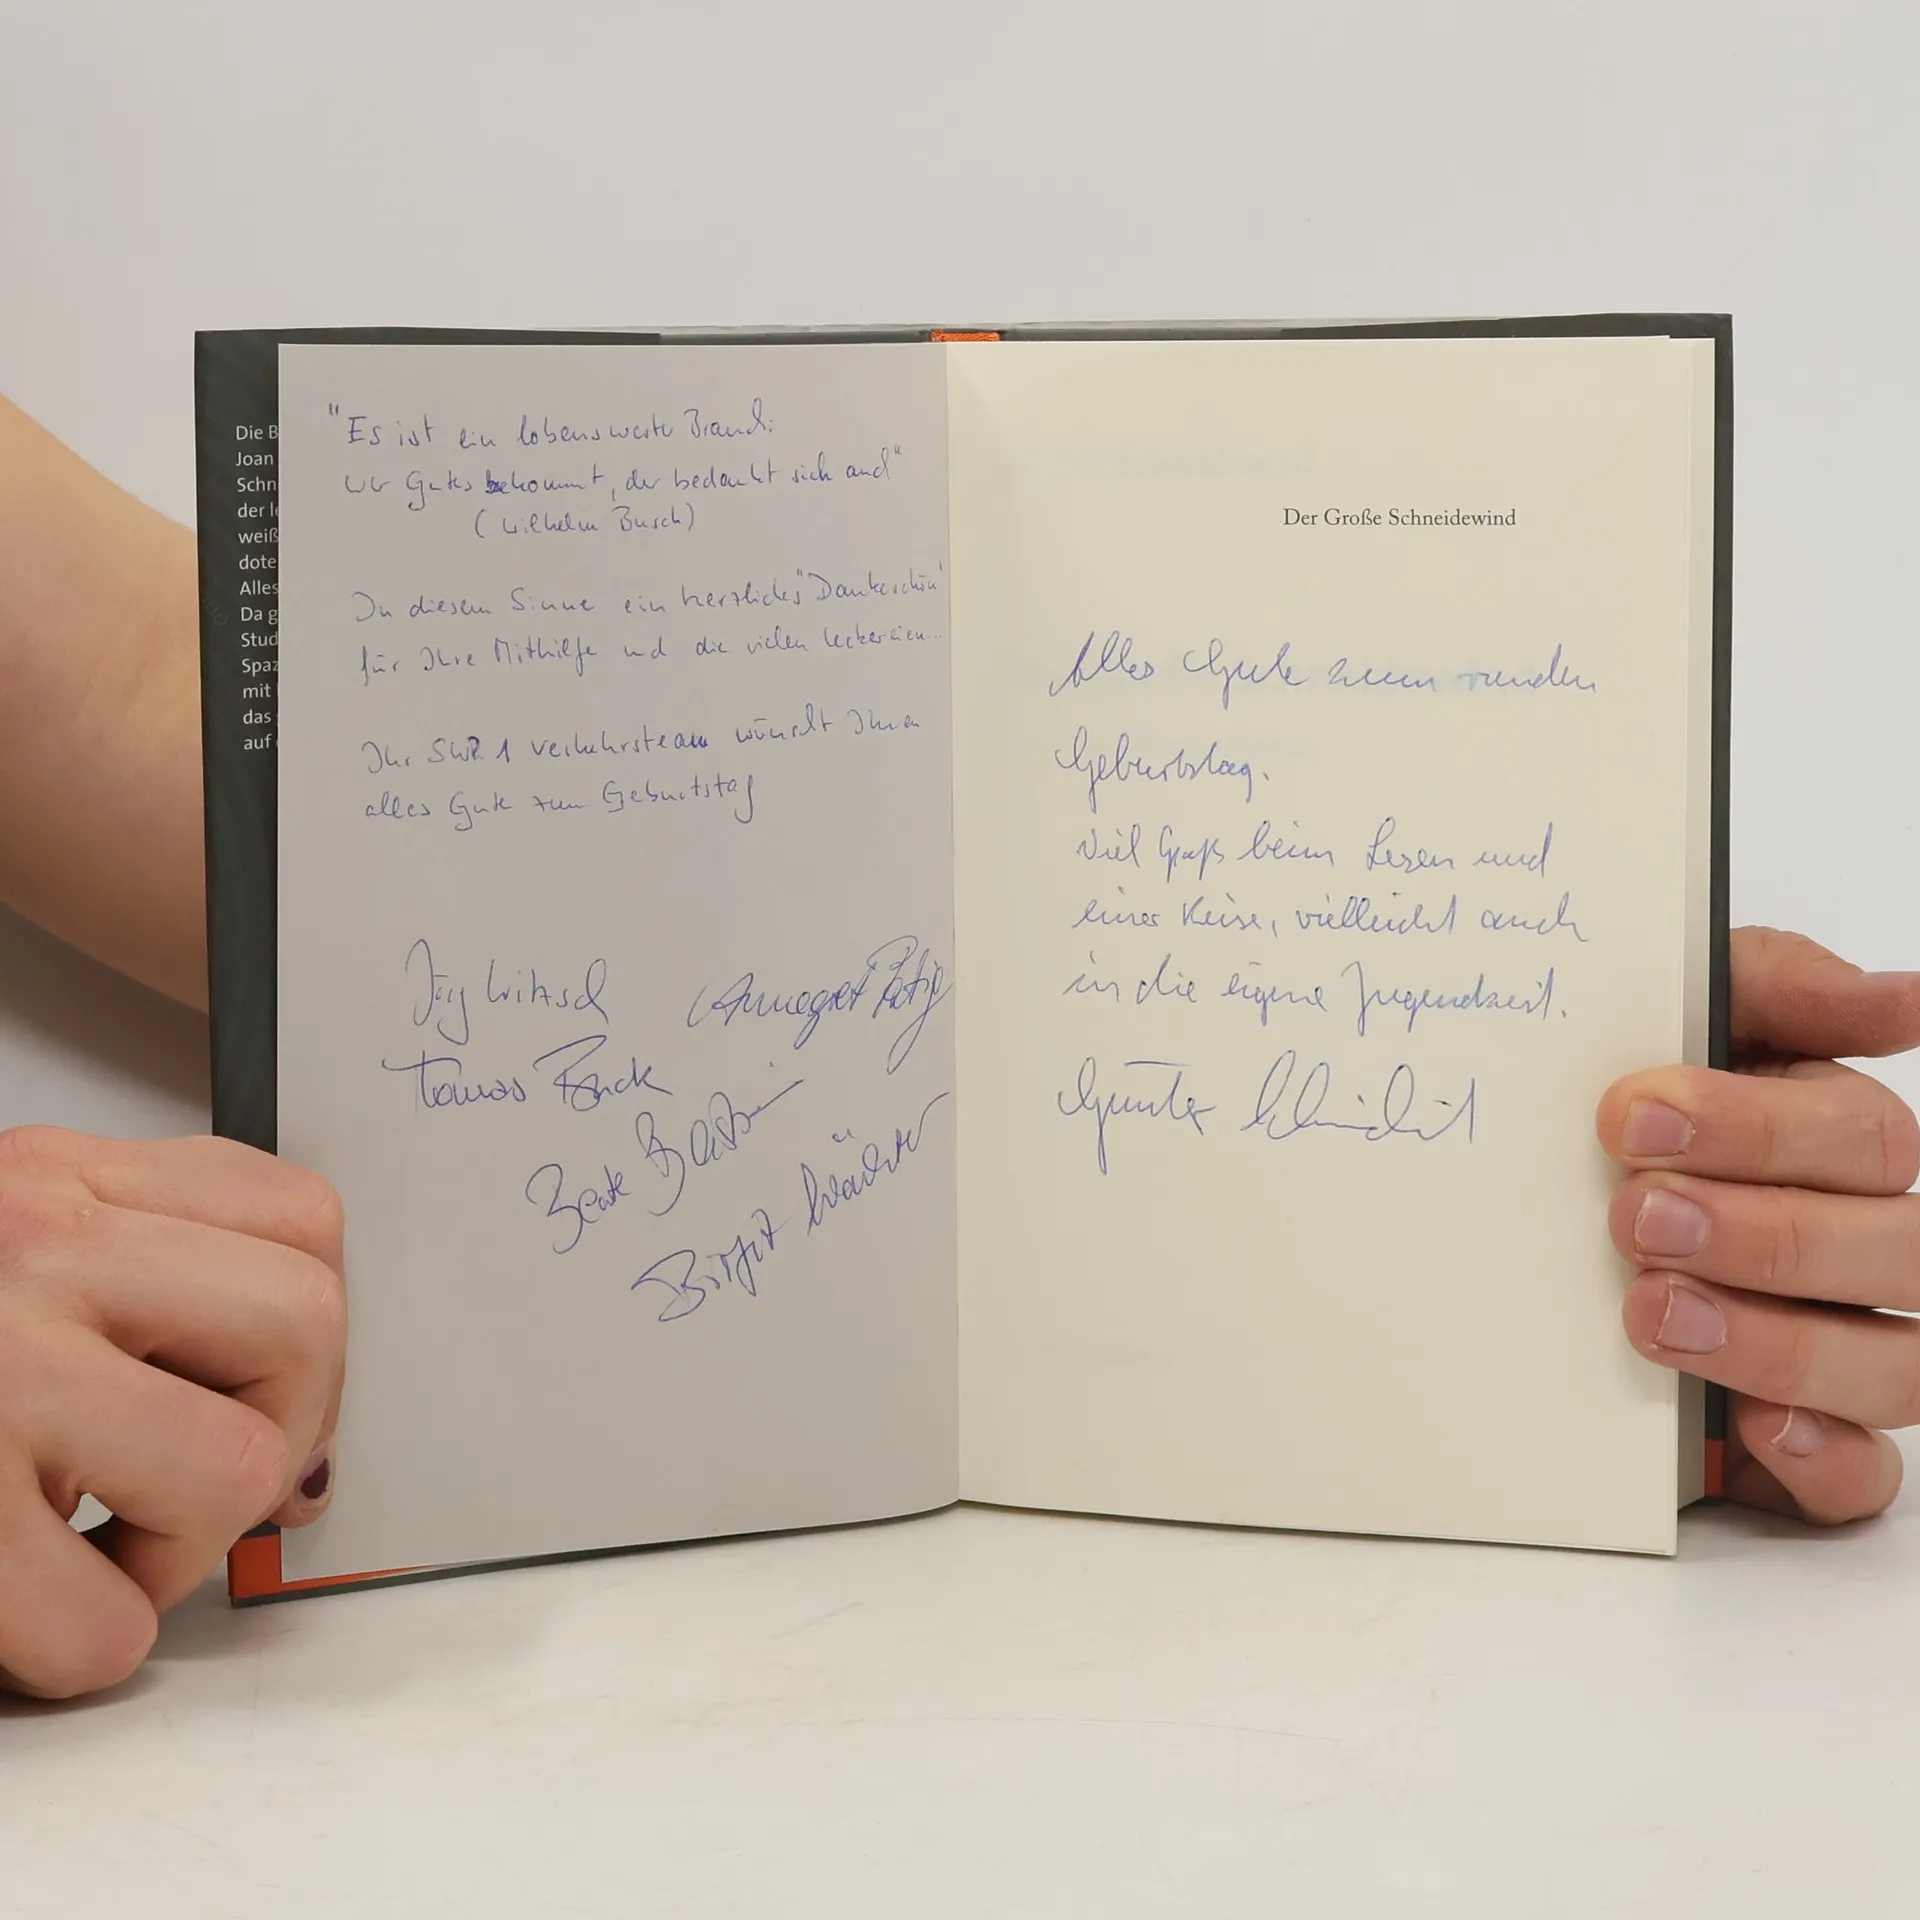 Die B
Joan
Schn
der le
weiß
dote
Alles
Da g
Stud
Spaz
mit
das
auf
"Es ist ein lobenswerter Brauch:
wer Gutes bekommt, der bedankt sich auch"
(Wilhelm Busch)
In diesem Sinne ein herzliches "Dankeschön"
für Ihre Mithilfe und die vielen Leckereien...
Ihr SWR 1 Verkehrsteam wünscht Ihnen
alles Gute zum Geburtstag
Jörg
Annegret
Tomas
Beate
Birgit Wächter
Der Große Schneidewind
Alles Gute zum runden
Geburtstag.
Viel Spaß beim Lesen und
einer Reise, vielleicht auch
in die eigene Jugendzeit.
Günter Schneidewind